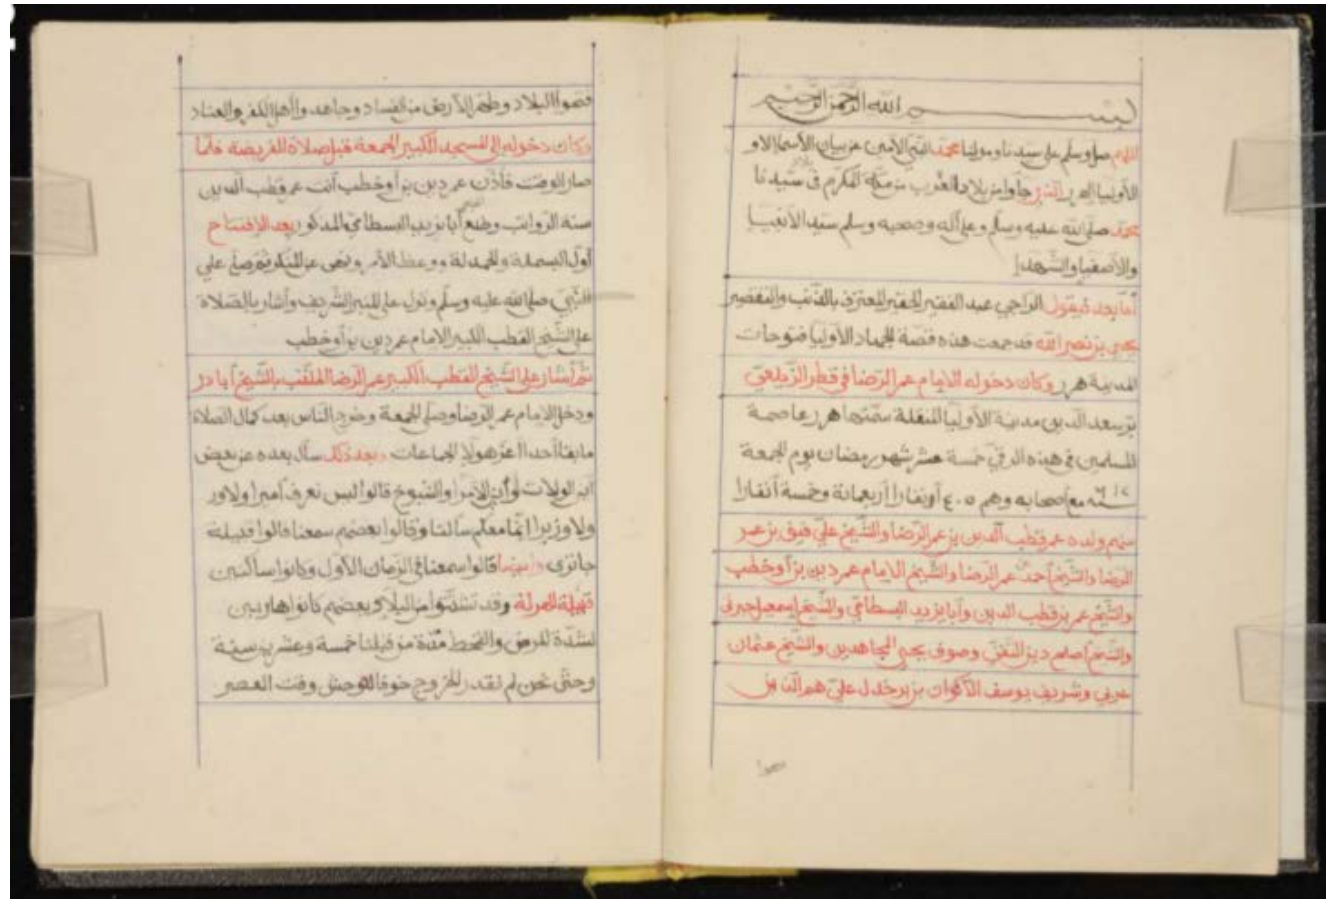 بســـــم الله الرحمن الرحيم
اللهم صل وسلم على سيدنا ومولنا محمد النبي الأمين عن بيان الأسما الاو
الأوليا الهرر الذين جاوا من بلاد العرب من مكة المكرم في سيدنا
محمد صلى الله عليه وسلم وعلى آله وصحبه وسلم سيد الأنبيا
والأصفيا والشهدا
أما بعد فيقول الراجي عبد الفقير الحقير المعترف بالذنب والتقصير
يحيى بن نصر الله قد جمعت هذه قصة الجهاد الأوليا فتوحات
المدينة هرر وكان دخوله الامام عمر الرضا في قطر الزيلعي
بر سعد الدين مدينة الأوليا المنقلة سمتها هرر عاصمة
المسلمين في هيذه الد في خمسة عشر شهر رمضان يوم الجمعة
سنه ٦١٢ مع أصحابه وهم ٤٠٥ أونفارا أربعمائة وخمسة أنفارا
منهم ولده عمر قطب الدين بن عمر الرضا والشيخ علي فيق بن عمر
الرضا والشيخ أحمد عمر الرضا والشيخ الامام عمر دين بن أوخطب
والشيخ عمر بن قطب الدين وأبا يزيد البسطامي والشيخ إسمعيل جبرتي
والشيخ أصلح دين التقي وصوفي يحيى المجاهدين والشيخ عثمان
عربي وشريف يوسف الأكوان بن برخدل علي هم الذين
فتحوا
فتحوا البلاد وطهر الأرض من الفساد وجاهدوا أهل الكفر والعناد
وكان دخوله إلى المسجد الكبير الجمعة قبل صلاة الفريضة فلما
صار الوقت فأذن عمر دين بن أوخطب أنت عمر قطب الدين
سنة الرواتب وطلع أبا يزيد البسطامي المذكور بعد الإفتتاح
أول البسملة والحمدلة ووعظ الأمر ونهى عن المنكر ثم صلى على
النبي صلى الله عليه وسلم ونزل على المنبر الشريف وأشار بالصلاة
على الشيخ القطب الكبير الامام عمر دين بن أوخطب
ثم أشار على الشيخ القطب الكبير عمر الرضا الملقب بالشيخ أبادر
ودخل الامام عمر الرضا وصلى الجمعة وخرج الناس بعد كمال الصلاة
ما بقا أحدا غر هولا الجماعات وبعد ذلك سأل بعده عن بعض
اين الولات وأين الأمرا والشيوخ قالوا ليس نعرف أميرا ولاور
ولا وزيرا إنما معلم سالتنا وقالوا بعضهم سمعنا قالوا قبيلة
جانزي وأيضا قالوا سمعنا في الزمان الأول وكانوا ساكنين
قبيلة الحرلة وقد تشتتوا من البلاد بعضهم كانوا هاربين
لشدة المرض والقحط مدة من قبلنا خمسة وعشرين سنة
وحتى نحن لم نقدر للخروج خوفا للوحش وقت العصر